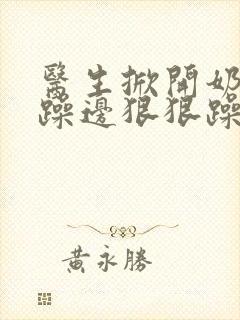 醫生掀開奶
躁邊狠狠躁
黃永勝